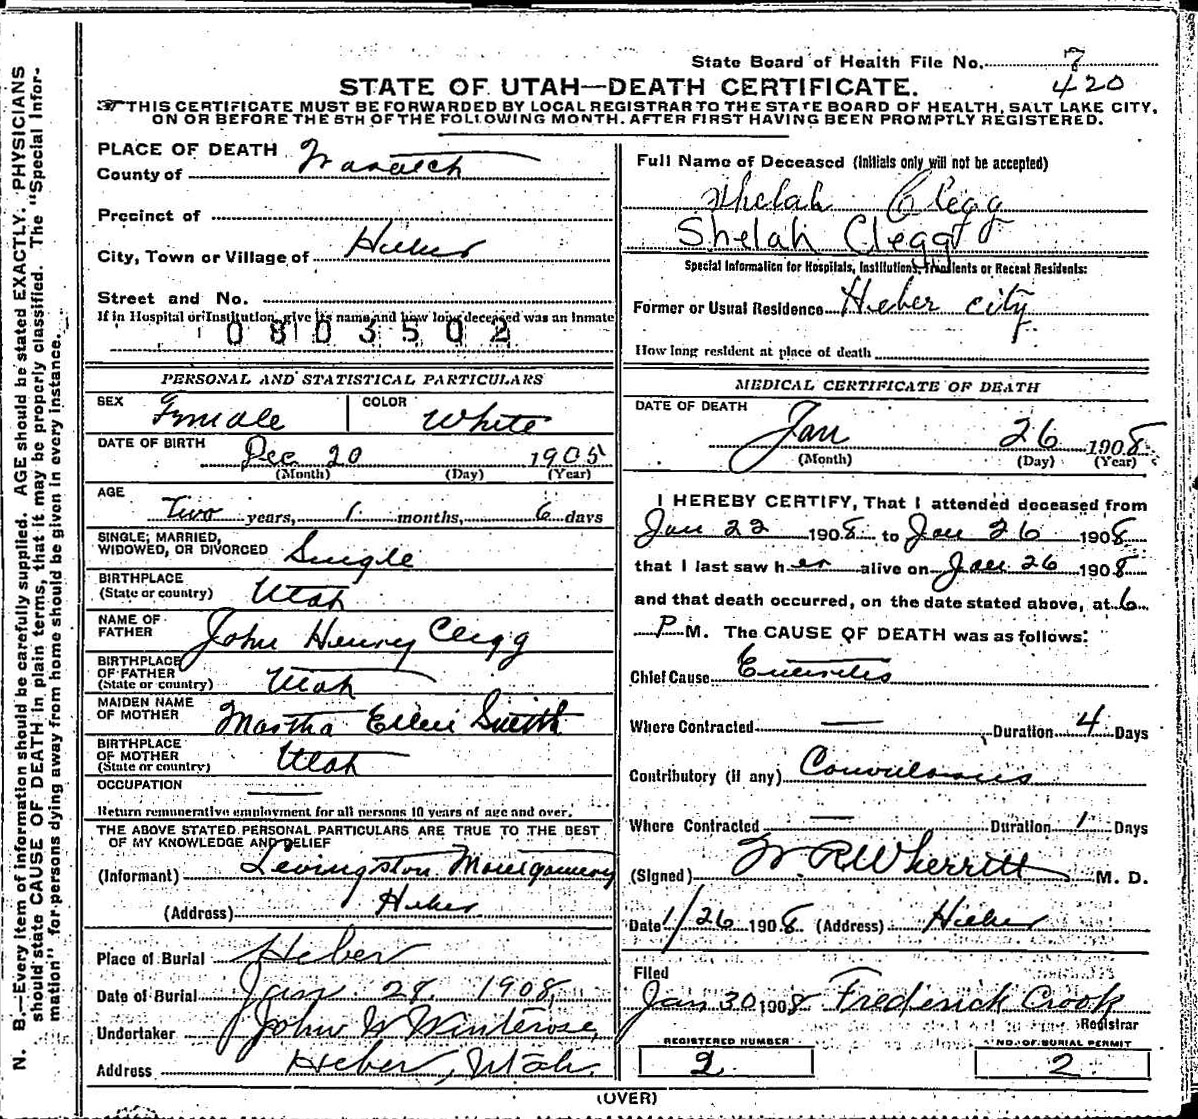 N. B.—Every item of information should be carefully supplied. AGE should be stated EXACTLY. PHYSICIANS
should state CAUSE OF DEATH in plain terms, that it may be properly classified. The "Special Infor-
mation" for persons dying away from home should be given in every instance.
State Board of Health File No. 7
420
STATE OF UTAH—DEATH CERTIFICATE.
THIS CERTIFICATE MUST BE FORWARDED BY LOCAL REGISTRAR TO THE STATE BOARD OF HEALTH, SALT LAKE CITY,
ON OR BEFORE THE 5TH OF THE FOLLOWING MONTH. AFTER FIRST HAVING BEEN PROMPTLY REGISTERED.
PLACE OF DEATH
County of Wasatch
Precinct of
City, Town or Village of Heber
Street and No.
If in Hospital or Institution, give its name and how long deceased was an Inmate
0803502
PERSONAL AND STATISTICAL PARTICULARS
SEX Female COLOR White
DATE OF BIRTH Dec 20 1905
(Month) (Day) (Year)
AGE
Two years, 1 months, 6 days
SINGLE, MARRIED,
WIDOWED, OR DIVORCED Single
BIRTHPLACE
(State or country) Utah
NAME OF
FATHER John Henry Clegg
BIRTHPLACE
OF FATHER
(State or country) Utah
MAIDEN NAME
OF MOTHER Martha Ellen Smith
BIRTHPLACE
OF MOTHER
(State or country) Utah
OCCUPATION
Return remunerative employment for all persons 10 years of age and over.
THE ABOVE STATED PERSONAL PARTICULARS ARE TRUE TO THE BEST
OF MY KNOWLEDGE AND BELIEF
(Informant) Levingston Montgomery
(Address) Heber
Place of Burial Heber
Date of Burial Jan. 28, 1908
Undertaker John W Winterose,
Address Heber, Utah.
Full Name of Deceased (Initials only will not be accepted)
Shelah Clegg
Shelah Clegg
Special Information for Hospitals, Institutions, Transients or Recent Residents:
Former or Usual Residence Heber City
How long resident at place of death
MEDICAL CERTIFICATE OF DEATH
DATE OF DEATH
Jan 26 1908
(Month) (Day) (Year)
I HEREBY CERTIFY, That I attended deceased from
Jan 22 1908 to Jan 26 1908
that I last saw her alive on Jan 26 1908
and that death occurred, on the date stated above, at 6
P M. The CAUSE OF DEATH was as follows:
Chief Cause Enteritis
Where Contracted — Duration 4 Days
Contributory (if any) Convulsions
Where Contracted — Duration 1 Days
(Signed) W. R. Wherritt M. D.
Date 1/26 1908 (Address) Heber
Filed
Jan 30 1908 Frederick Crook
Registrar
REGISTERED NUMBER
2
NO. OF BURIAL PERMIT
2
(OVER)